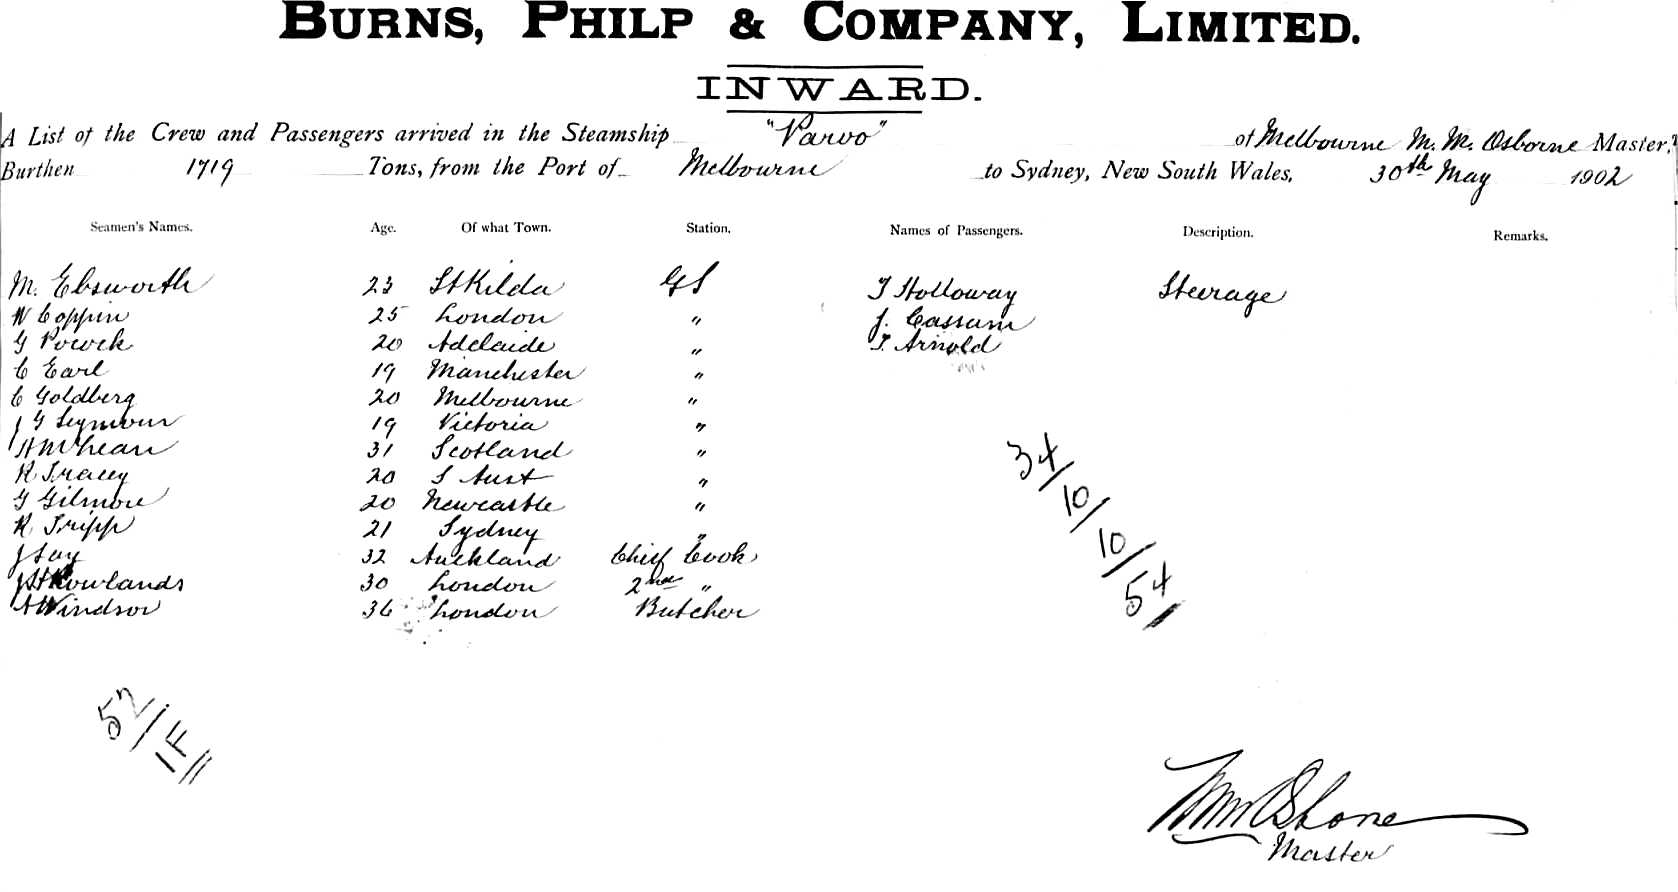 BURNS, PHILP & COMPANY, LIMITED.
INWARD.
A List of the Crew and Passengers arrived in the Steamship "Parvo" of Melbourne M. M. Osborne Master,
Burthen 1719 Tons, from the Port of Melbourne to Sydney, New South Wales, 30th May 1902
Seamen's Names. Age. Of what Town. Station. Names of Passengers. Description. Remarks.
M. Ebsworth 23 St Kilda GS T Holloway Steerage
W Coppin 25 London " J. Cassam
G Pocock 20 Adelaide " T. Arnold
C Earl 19 Manchester "
C Goldberg 20 Melbourne "
J G Seymour 19 Victoria "
H McLean 31 Scotland "
R Tracey 20 S Aust "
G Gilmore 20 Newcastle "
R Tripp 21 Sydney "
J Lay 32 Auckland Chief Cook
J H Rowlands 30 London 2nd "
A Windsor 36 London Butcher
34/
10/
10/
54
52/
1F
M M Osborne
Master